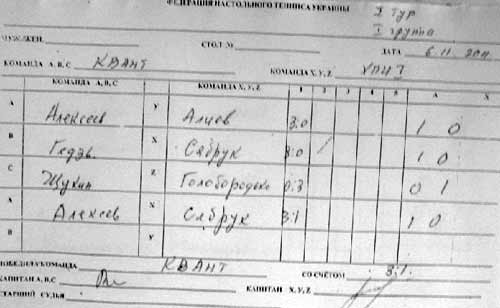 ФЕДЕРАЦИЯ НАСТОЛЬНОГО ТЕННИСА УКРАИНЫ
I тур
I группа
МУЖ./ЖЕН. СТОЛ № ДАТА 6.11.2011
КОМАНДА А, В, С КВАНТ КОМАНДА X, Y, Z УПИТ
КОМАНДА А, В, С КОМАНДА X, Y, Z 1 2 3 4 5 А X
А Алексеев Y Алиев 3:0 1 0
В X Сябрук 3:0 1 0
С Щукин Z Голобородько 0:3 0 1
А Алексеев X Сябрук 3:1 1 0
В Y
ПОБЕДИЛА КОМАНДА КВАНТ СО СЧЁТОМ 3:1
КАПИТАН А, В, С КАПИТАН X, Y, Z
СТАРШИЙ СУДЬЯ